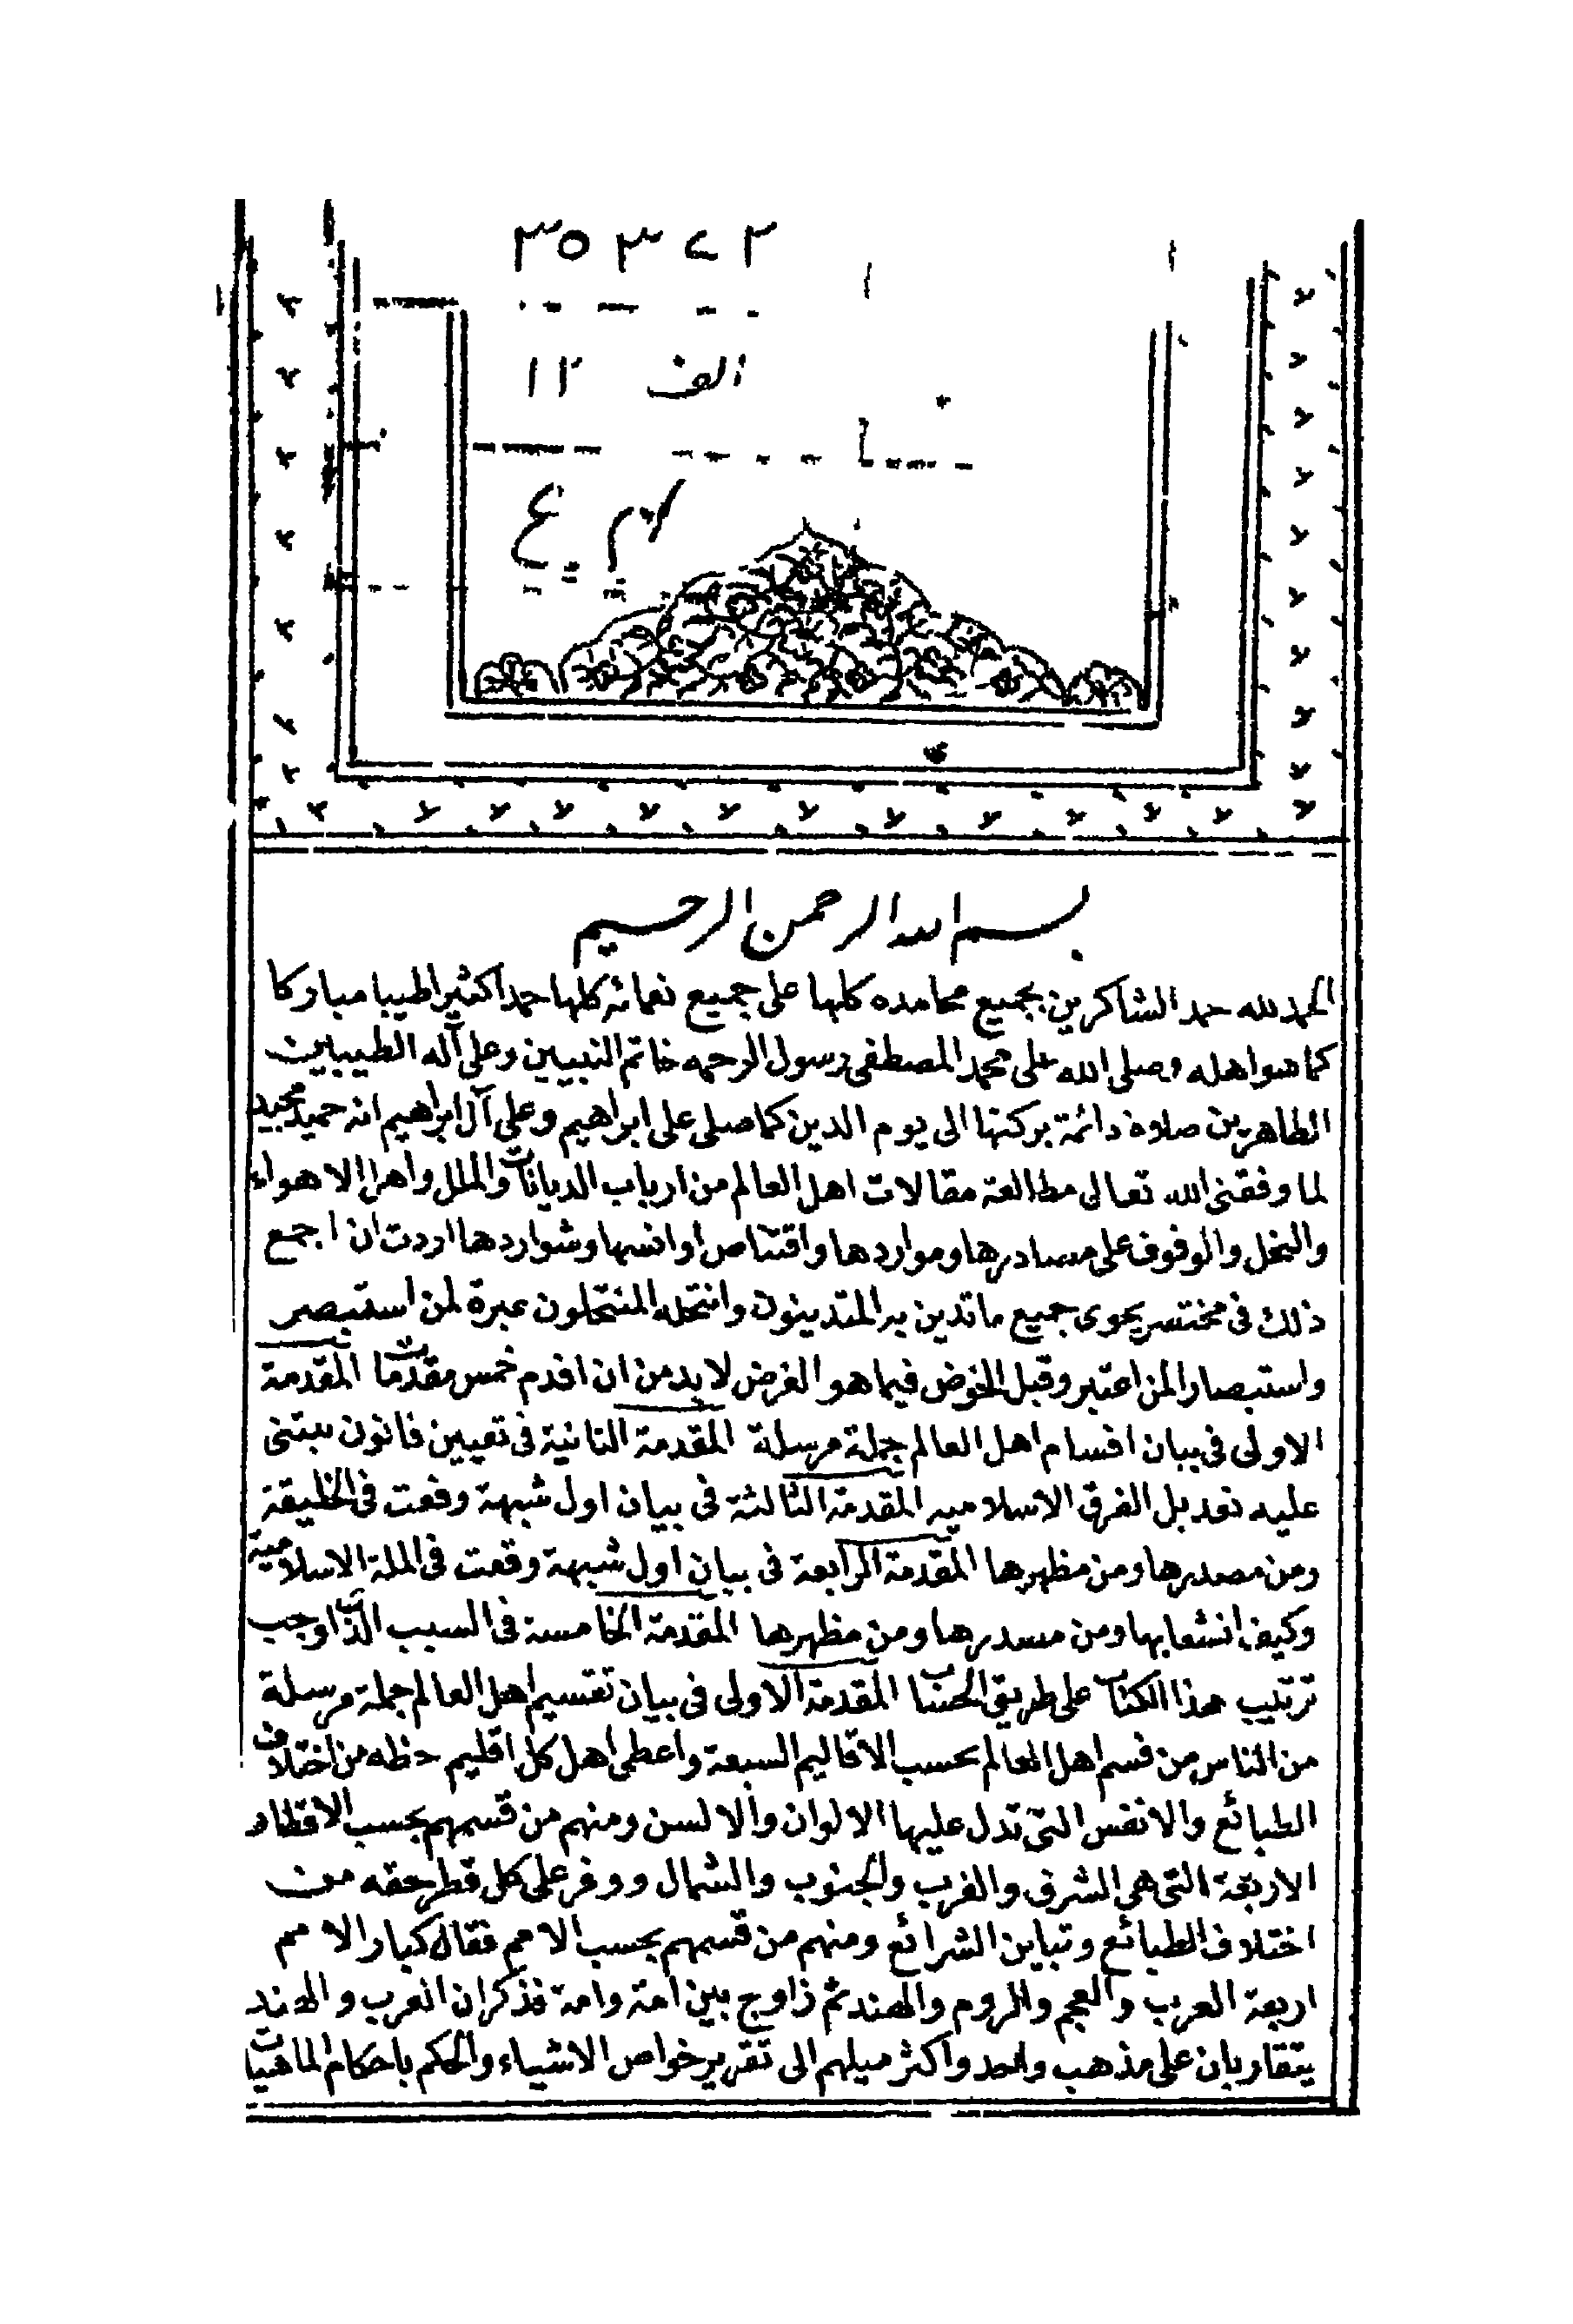 ٣٥٣٧٢
الف ١٢
بسم الله الرحمن الرحيم
الحمد لله حمد الشاكرين بجميع محامده كلها على جميع نعمائه كلها حمدا كثيرا طيبا مباركا
كما هو اهله وصلى الله على محمد المصطفى رسول الرحمه خاتم النبيين وعلى آله الطيبين
الطاهرين صلاة دائمة بركتها الى يوم الدين كما صلى على ابراهيم وعلى آل ابراهيم انه حميد مجيد
لما وفقنى الله تعالى مطالعة مقالات اهل العالم من ارباب الديانات والملل واهل الاهواء
والنحل والوقوف على مصادرها ومواردها واقتناص اوانسها وشواردها اردت ان اجمع
ذلك فى مختصر يحوى جميع ما تدين به المتدينون وانتحله المنتحلون عبرة لمن استبصر
واستبصارا لمن اعتبر وقبل الخوض فيما هو الغرض لا بد من ان اقدم خمس مقدمات المقدمة
الاولى فى بيان اقسام اهل العالم جملة مرسلة المقدمة الثانية فى تعيين قانون يبتنى
عليه تعديل الفرق الاسلاميه المقدمة الثالثة فى بيان اول شبهة وقعت فى الخليقة
ومن مصدرها ومن مظهرها المقدمة الرابعة فى بيان اول شبهة وقعت فى الملة الاسلامية
وكيف انشعابها ومن مصدرها ومن مظهرها المقدمة الخامسة فى السبب الذى اوجب
ترتيب هذا الكتاب على طريق الحساب المقدمة الاولى فى بيان تقسيم اهل العالم جملة مرسلة
من الناس من قسم اهل العالم بحسب الاقاليم السبعة واعطى اهل كل اقليم حظه من اختلاف
الطبائع والانفس التى تدل عليها الالوان والالسن ومنهم من قسمهم بحسب الاقطار
الاربعة التى هى الشرق والغرب والجنوب والشمال ووفر على كل قطر حقه من
اختلاف الطبائع وتباين الشرائع ومنهم من قسمهم بحسب الامم فقال كبار الامم
اربعة العرب والعجم والروم والهند ثم زاوج بين امة وامة فذكر ان العرب والهند
يتقاربان على مذهب واحد واكثر ميلهم الى تقرير خواص الاشياء والحكم باحكام الماهيات